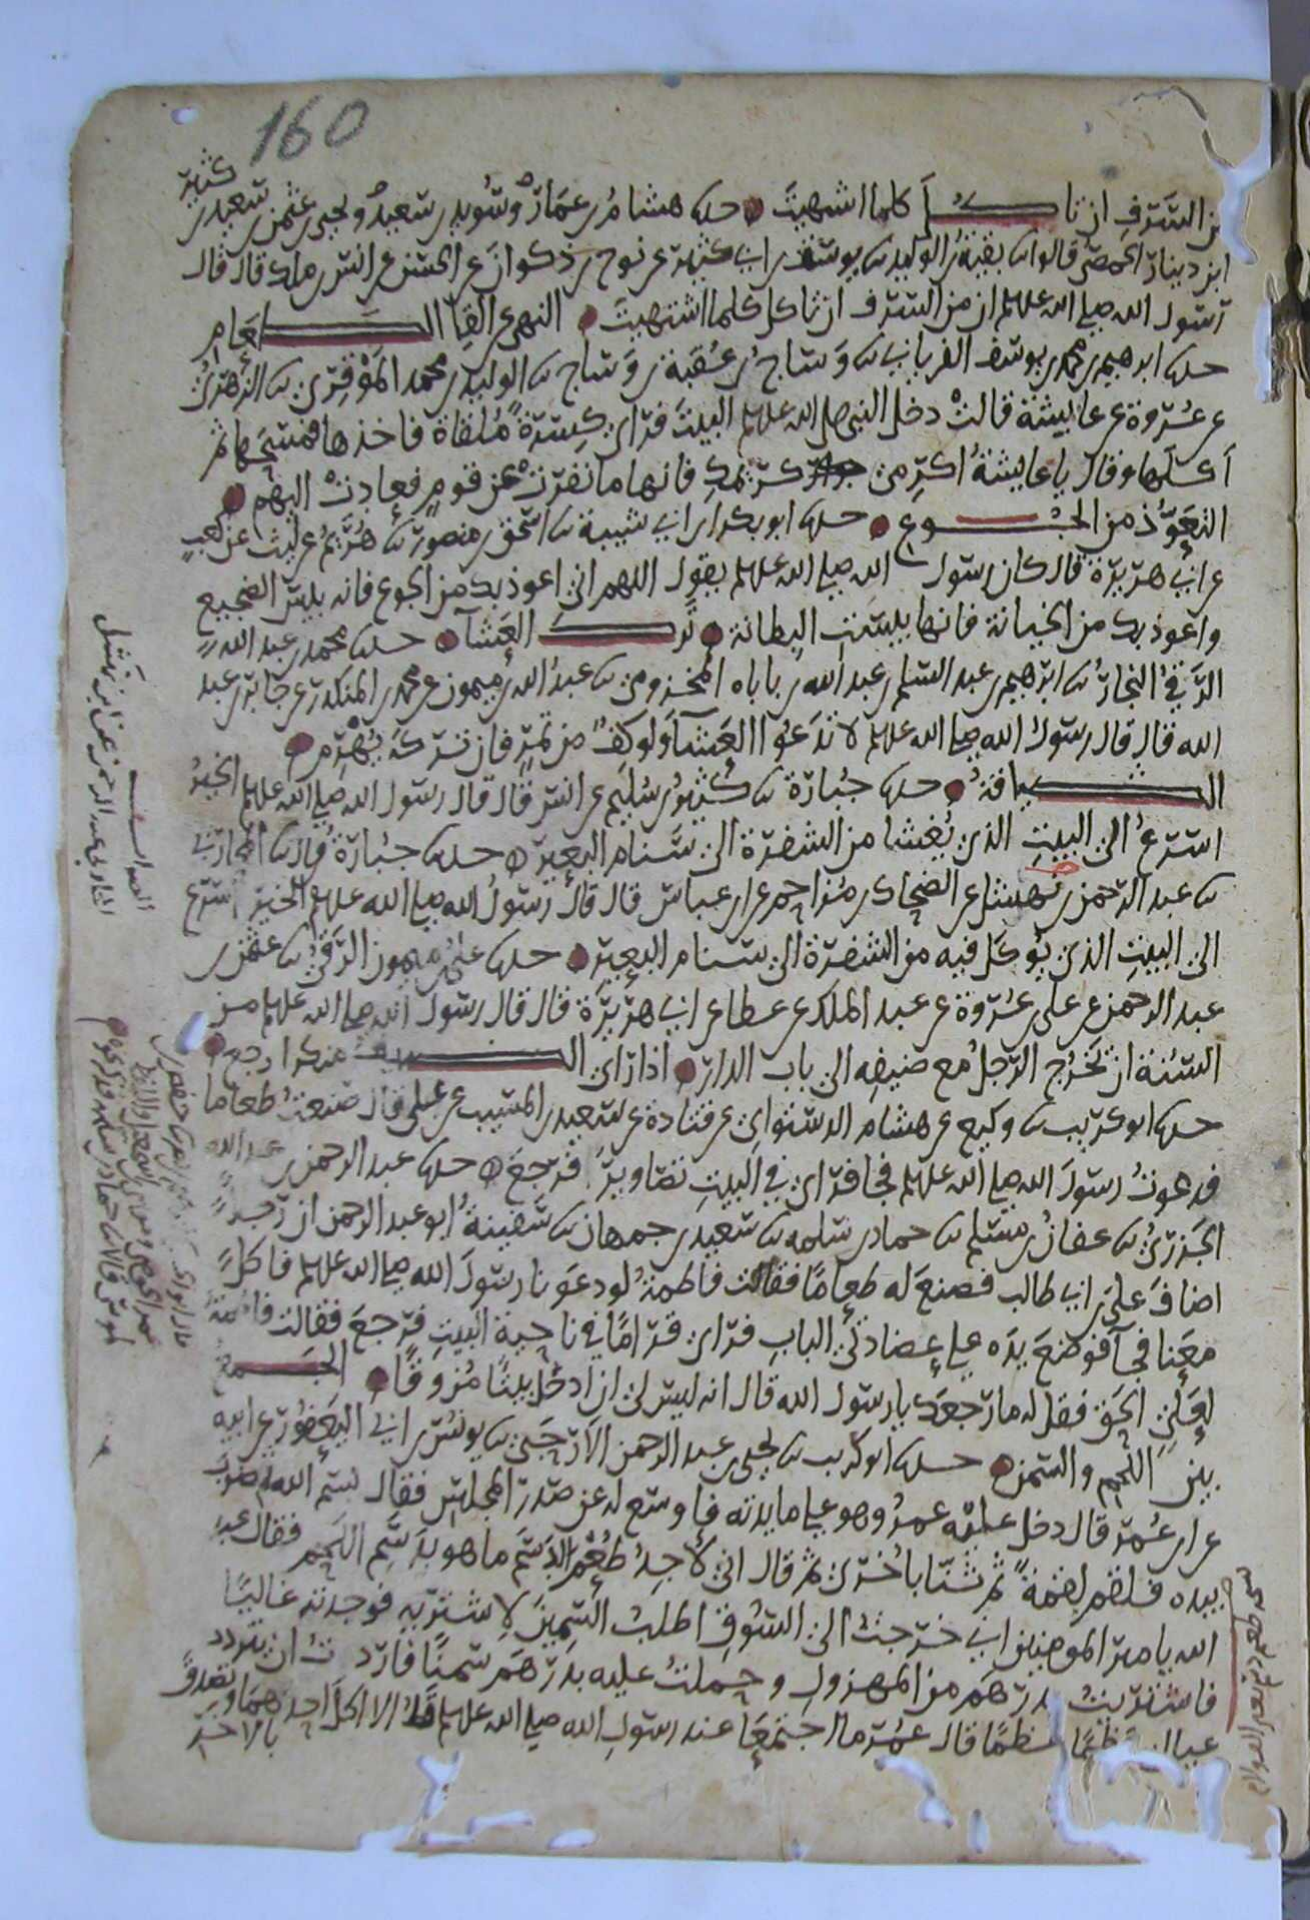 160
من السرف ان تاكل كلما اشتهيت حدثنا هشام بن عمار وسويد بن سعيد ويحيى بن عثمن بن سعيد بن كثير
ابن دينار الحمصي قالوا ثنا بقية بن الوليد ثنا يوسف بن ابي كثير عن نوح بن ذكوان عن الحسن عن انس بن ملك قال قال
رسول الله صلى الله عليه وسلم ان من السرف ان تاكل كلما اشتهيت النهي عن القا الطعام
حدثنا ابرهيم بن محمد بن يوسف الفريابي ثنا وساج بن عقبة بن وساج ثنا الوليد بن محمد الموقري ثنا الزهري
عن عروة عن عايشة قالت دخل النبي صلى الله عليه وسلم البيت فراى كسرة ملقاة فاخذها فمسحها ثم
اكلها وقال يا عايشة اكرمي كريمك فانها ما نفرت عن قوم فعادت اليهم
التعوذ من الجوع حدثنا ابو بكر بن ابي شيبة ثنا اسحق بن منصور ثنا هريم عن ليث عن كعب
عن ابي هريرة قال كان رسول الله صلى الله عليه وسلم يقول اللهم اني اعوذ بك من الجوع فانه بيس الضجيع
واعوذ بك من الخيانة فانها بيست البطانة ترك العشا حدثنا محمد بن عبد الله
الرقي النجار ثنا ابرهيم بن عبد السلم بن عبد الله بن باباه المخزومي ثنا عبد الله بن ميمون عن محمد بن المنكدر عن جابر بن عبد
الله قال قال رسول الله صلى الله عليه وسلم لا تدعوا العشا ولو كف من تمر فان تركه يهرم
الضيافة حدثنا جبارة ثنا كثير بن سليم عن انس قال قال رسول الله صلى الله عليه وسلم الخير
اسرع الى البيت الذي يغشا من الشفرة الى سنام البعير حدثنا جبارة قال ثنا المحاربي
ثنا عبد الرحمن بن نهشل عن الضحاك بن مزاحم عن ابن عباس قال قال رسول الله صلى الله عليه وسلم الخير اسرع
الى البيت الذي يوكل فيه من الشفرة الى سنام البعير حدثنا علي بن ميمون الرقي ثنا عثمن بن
عبد الرحمن عن علي بن عروة عن عبد الملك عن عطا عن ابي هريرة قال قال رسول الله صلى الله عليه وسلم من
السنة ان يخرج الرجل مع ضيفه الى باب الدار اذا راى الضيف منكرا رجع
حدثنا ابو كريب ثنا وكيع عن هشام الدستواي عن قتادة عن سعيد بن المسيب عن علي قال صنعت طعاما
فدعوت رسول الله صلى الله عليه وسلم فجا فراى في البيت تصاوير فرجع حدثنا عبد الرحمن بن عبد الله
الجزري ثنا عفان بن مسلم ثنا حماد بن سلمه ثنا سعيد بن جمهان ثنا سفينة ابو عبد الرحمن ان رجلا
اضاف علي بن ابي طالب فصنع له طعاما فقالت فاطمة لو دعونا رسول الله صلى الله عليه وسلم فاكل
معنا فجا فوضع يده على عضادتي الباب فراى قراما في ناحية البيت فرجع فقالت فاطمة
لعلي الحق فقل له ما رجعك يا رسول الله قال انه ليس لي ان ادخل بيتا مزوقا الجمع
بين اللحم والسمن حدثنا ابو كريب ثنا يحيى بن عبد الرحمن الارحبي ثنا يونس بن ابي اليعفور عن ابيه
عن ابن عمر قال دخل عليه عمر وهو على مايدته فاوسع له عن صدر المجلس فقال بسم الله ثم ضرب
بيده فلقم لقمة ثم ثنا باخرى ثم قال اني لاجد طعم الدسم ما هو بدسم اللحم فقال عبد
الله يا امير المومنين اني خرجت الى السوق اطلب السمين لاشتريه فوجدته غاليا
فاشتريت بدرهم من المهزول وحملت عليه بدرهم سمنا فاردت ان يتردد
عيالي عظما عظما قال عمر ما اجتمعا عند رسول الله صلى الله عليه وسلم قط الا اكل احدهما وتصدق
بالاخر